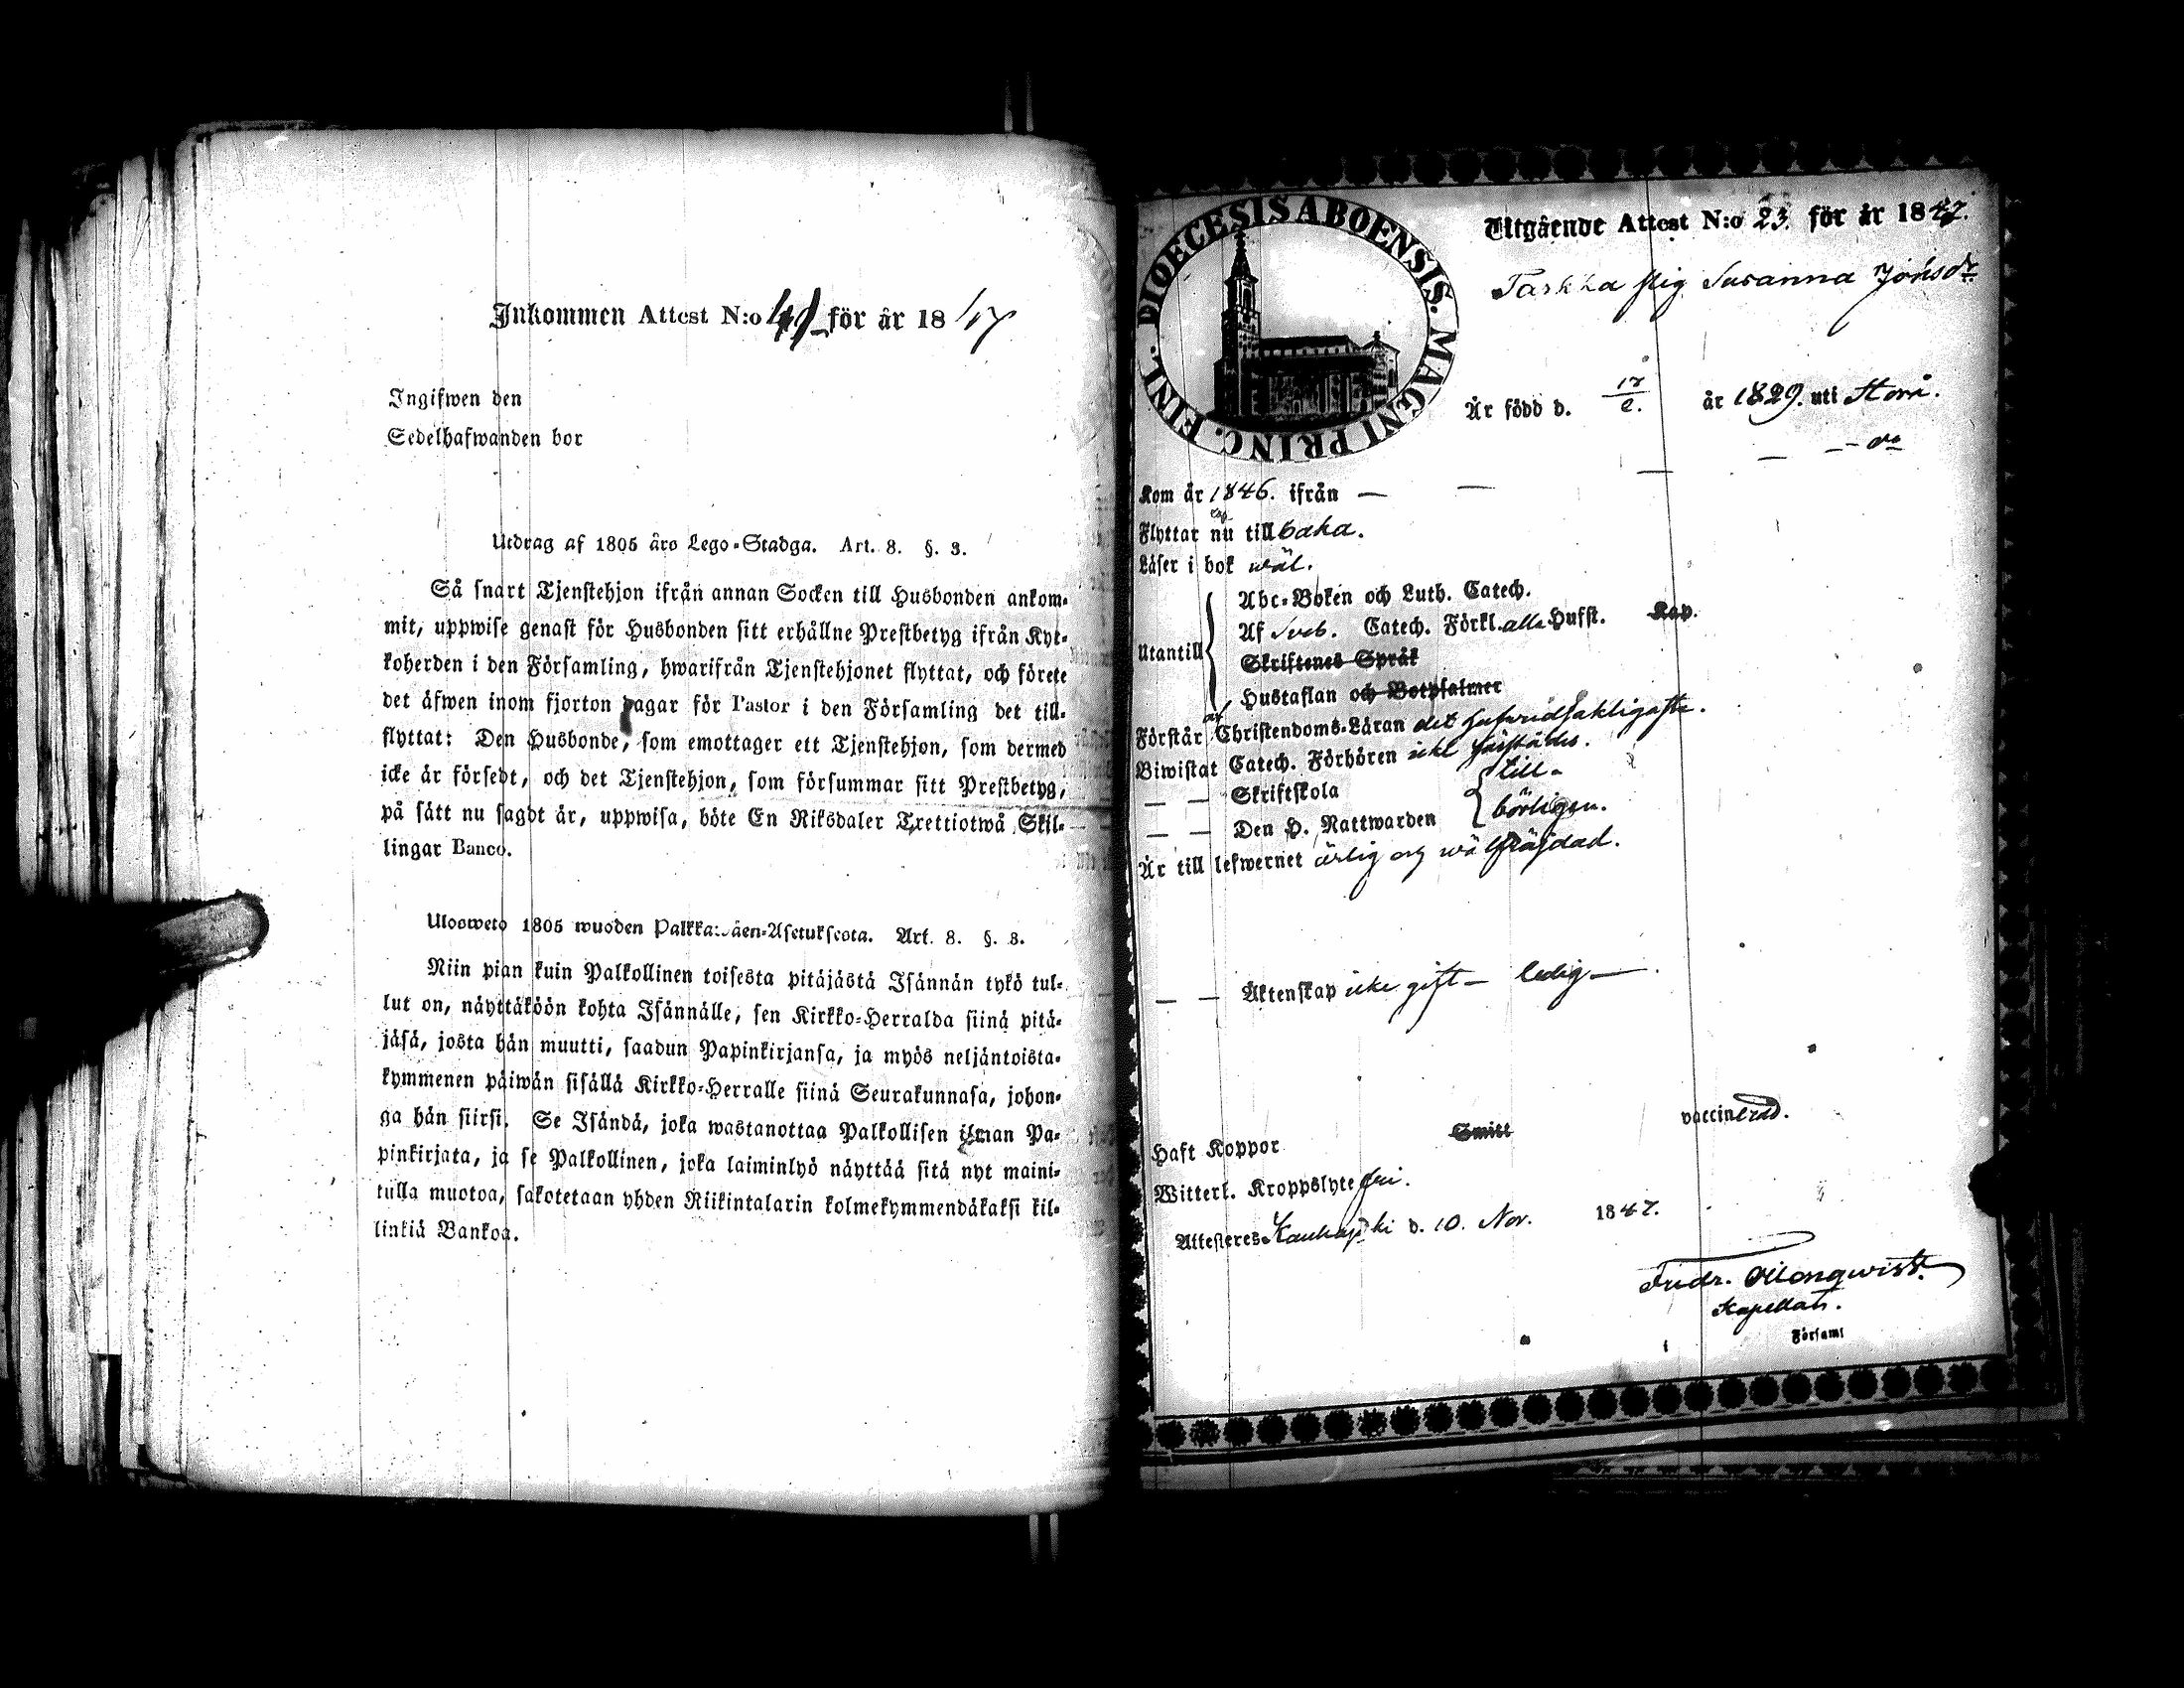 Inkommen Attest N:o 41 för år 1847
Ingifwen den
Sedelhafwanden bor
Utdrag af 1805 års Lego-Stadga. Art. 8. §. 3.
Så snart Tjenstehjon ifrån annan Socken till Husbonden ankom-
mit, uppwise genast för Husbonden sitt erhållne Prestbetyg ifrån Kyr-
koherden i den Församling, hwarifrån Tjenstehjonet flyttat, och förete
det äfwen inom fjorton dagar för Pastor i den Församling det till-
flyttat: Den Husbonde, som emottager ett Tjenstehjon, som dermed
icke är försedt, och det Tjenstehjon, som försummar sitt Prestbetyg,
på sätt nu sagdt är, uppwisa, böte En Riksdaler Trettiotwå Skil-
lingar Banco.
Ulosweto 1805 wuoden Palkkawäen-Asetuksesta. Art. 8. §. 3.
Niin pian kuin Palkollinen toisesta pitäjästä Isännän tykö tul-
lut on, näyttäköön kohta Isännälle, sen Kirkko-Herralda siinä pitä-
jäsä, josta hän muutti, saadun Papinkirjansa, ja myös neljäntoista-
kymmenen päiwän sisällä Kirkko-Herralle siinä Seurakunnasa, johon-
ga hän siirsi. Se Isändä, joka wastanottaa Palkollisen ilman Pa-
pinkirjata, ja se Palkollinen, joka laiminlyö näyttää sitä nyt maini-
tulla muotoa, sakotetaan yhden Riikintalarin kolmekymmendäkaksi kil-
linkiä Bankoa.
DIOECESIS ABOENSIS. MAGNI PRINC. FINL.
Utgående Attest N:o 23. för år 1847.
Tarkka pig. Susanna Johsdr
Är född d. 17/2. år 1829. uti Storå.
— — — do
Kom år 1846. ifrån — —
Flyttar nu tillbaka.
Läser i bok wäl.
Utantill
Abc-Boken och Luth. Catech.
Af Sveb. Catech. Förkl. alla Hufst. Kap.
Skriftenes Språk
Hustaflan och Botpsalmer
Förstår af Christendoms-Läran det hufwudsakligaste.
Biwistat Catech. Förhören icke härstädes.
— — Skriftskola
till-
— — Den H. Nattwarden
börligen.
Är till lefwernet ärlig och wälfräjdad.
— — Äktenskap icke gift — ledig —.
Haft Koppor Smitt vaccinerad.
Witterl. Kroppslyte fri.
Attesteras Kauhajoki d. 10. Nov. 1847.
Fridr.
Kapellan.
Församl